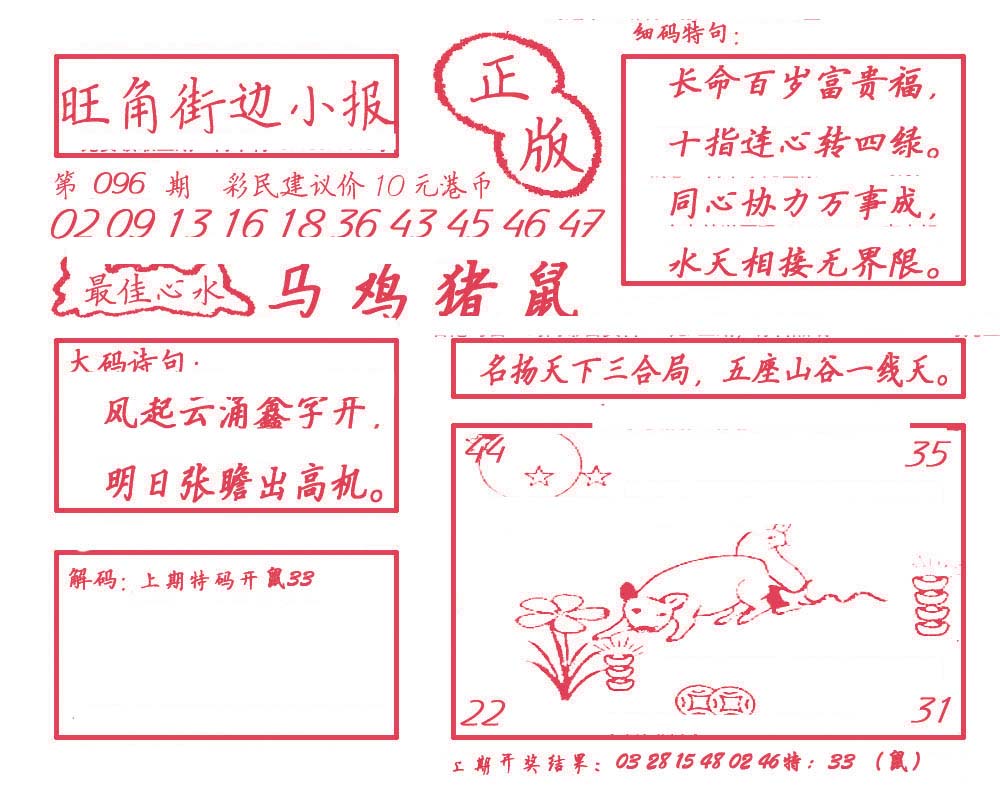 细码特句：
旺角街边小报
正
版
长命百岁富贵福，
十指连心转四绿。
同心协力万事成，
水天相接无界限。
第 096 期 彩民建议价 10 元港币
02 09 13 16 18 36 43 45 46 47
最佳心水
马 鸡 猪 鼠
大码诗句：
风起云涌鑫字开，
明日张瞻出高机。
名扬天下三合局，五座山谷一线天。
44
35
22
31
解码：上期特码开鼠33
上期开奖结果：03 28 15 48 02 46特：33 （鼠）